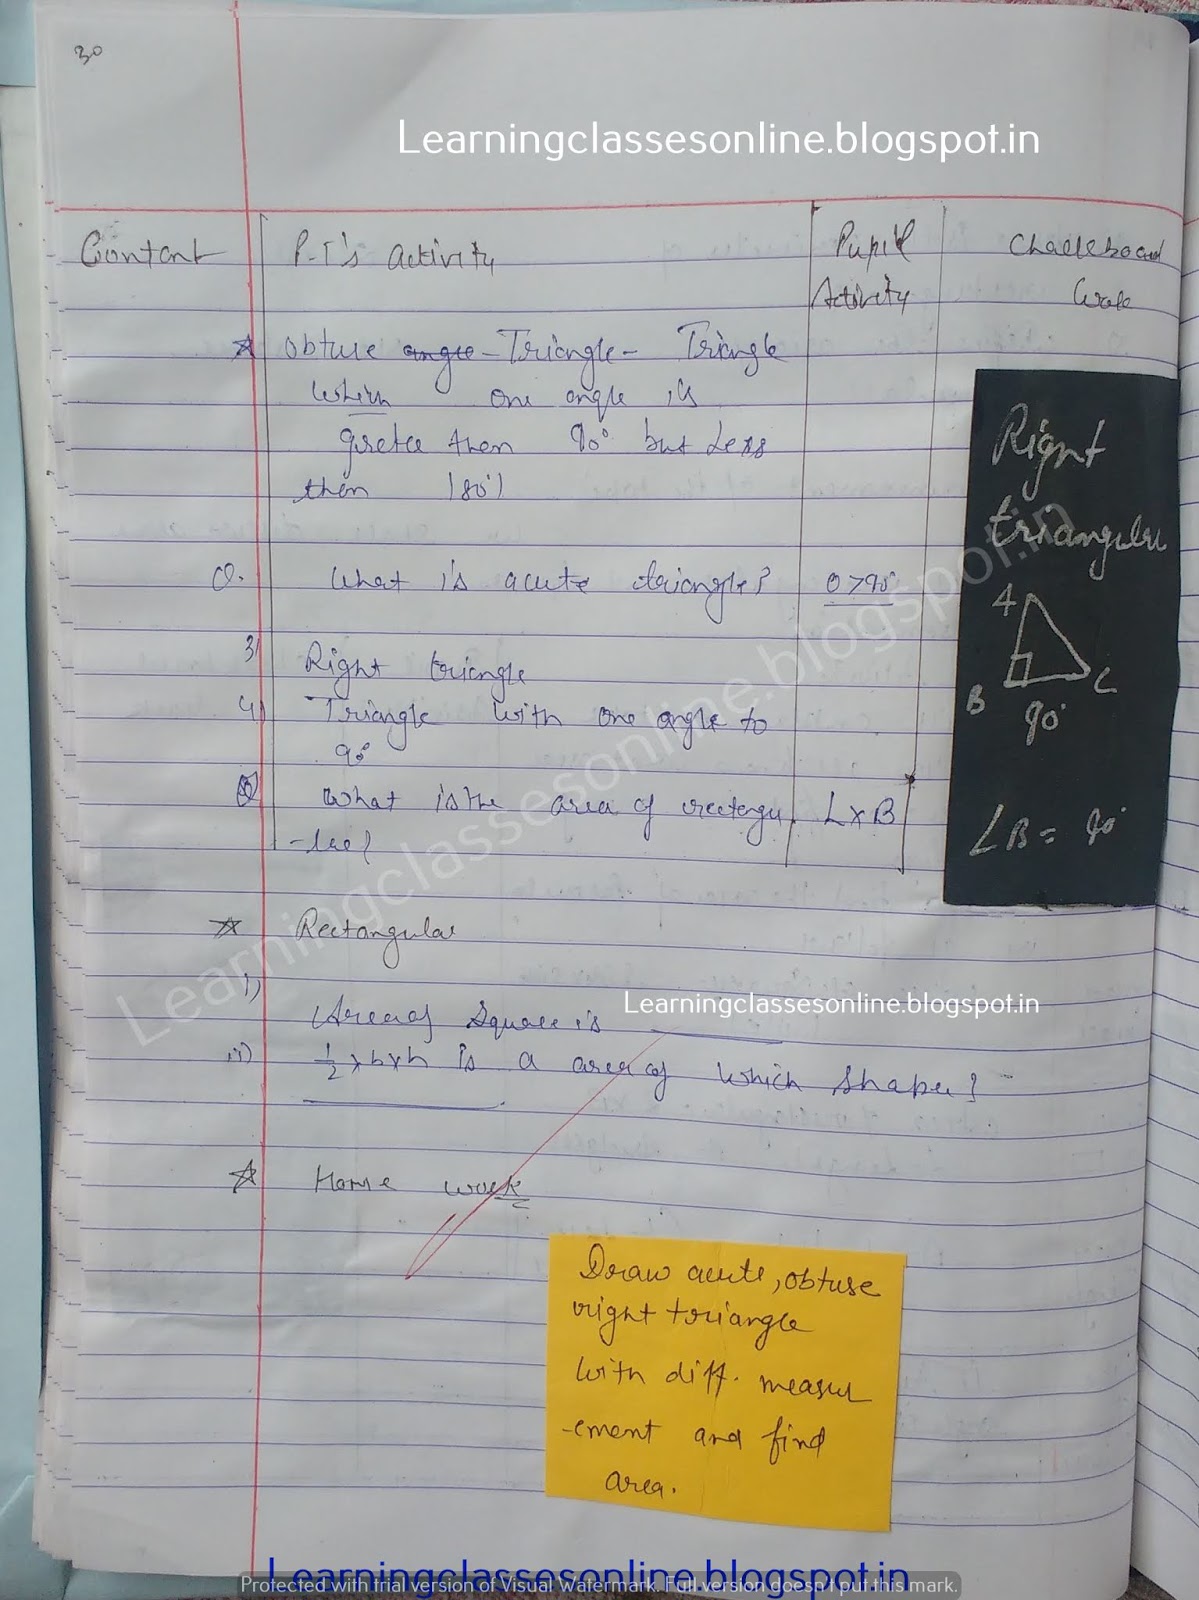 30
Learningclassesonline.blogspot.in
Contant P-T's Activity Pupil Activity Chalkboard Work
☆ Obtuse angle - Triangle - Triangle
Which one angle is
greter then 90° but Less
then 180°)
Q. What is acute triangle? θ > 90°
3) Right triangle
4) Triangle with one angle to
90°
Q What is the area of rectangu L x B
-lar?
Right
triangular
A
B C
90°
∠B = 90°
☆ Rectangular
i) Area of Square is ______
Learningclassesonline.blogspot.in
ii) 1/2 x b x h is a area of which shape?
☆ Home work
Draw acute, obtuse
right triangle
with diff. measur
-ement and find
area.
Learningclassesonline.blogspot.in
Learningclassesonline.blogspot.in
Protected with trial version of Visual Watermark. Full version doesn't put this mark.